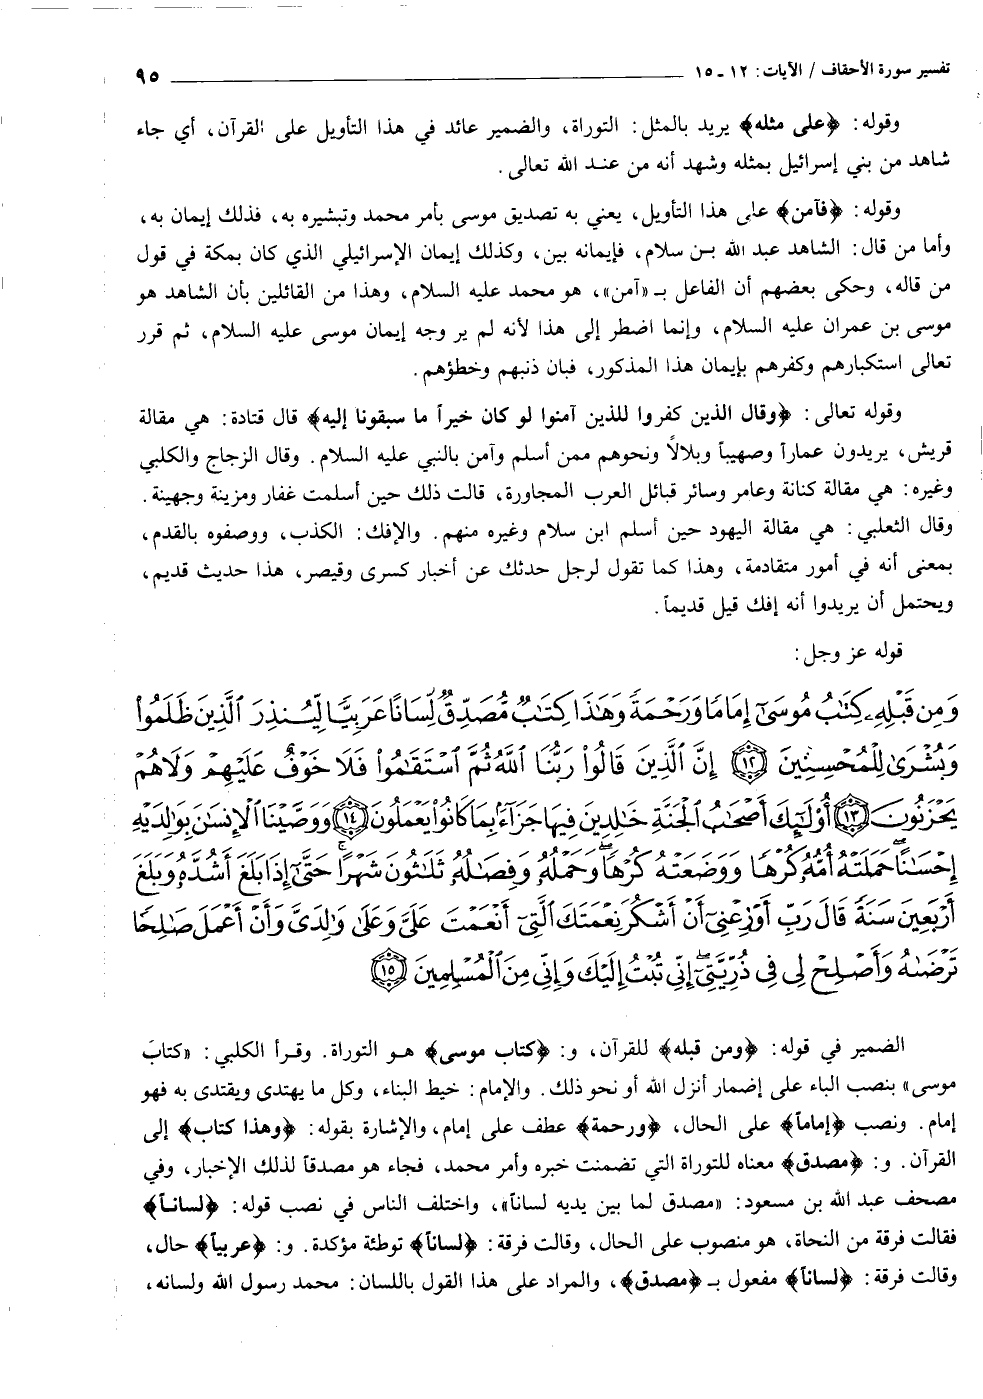 تفسير سورة الأحقاف / الآيات: ١٢ ـ ١٥ ٩٥
وقوله: ﴿على مثله﴾ يريد بالمثل: التوراة، والضمير عائد في هذا التأويل على القرآن، أي جاء
شاهد من بني إسرائيل بمثله وشهد أنه من عند الله تعالى.
وقوله: ﴿فآمن﴾ على هذا التأويل، يعني به تصديق موسى بأمر محمد وتبشيره به، فذلك إيمان به،
وأما من قال: الشاهد عبد الله بن سلام، فإيمانه بين، وكذلك إيمان الإسرائيلي الذي كان بمكة في قول
من قاله، وحكى بعضهم أن الفاعل بـ «آمن»، هو محمد عليه السلام، وهذا من القائلين بأن الشاهد هو
موسى بن عمران عليه السلام، وإنما اضطر إلى هذا لأنه لم ير وجه إيمان موسى عليه السلام، ثم قرر
تعالى استكبارهم وكفرهم بإيمان هذا المذكور، فبان ذنبهم وخطؤهم.
وقوله تعالى: ﴿وقال الذين كفروا للذين آمنوا لو كان خيراً ما سبقونا إليه﴾ قال قتادة: هي مقالة
قريش، يريدون عماراً وصهيباً وبلالاً ونحوهم ممن أسلم وآمن بالنبي عليه السلام. وقال الزجاج والكلبي
وغيره: هي مقالة كنانة وعامر وسائر قبائل العرب المجاورة، قالت ذلك حين أسلمت غفار ومزينة وجهينة.
وقال الثعلبي: هي مقالة اليهود حين أسلم ابن سلام وغيره منهم. والإفك: الكذب، ووصفوه بالقدم،
بمعنى أنه في أمور متقادمة، وهذا كما تقول لرجل حدثك عن أخبار كسرى وقيصر، هذا حديث قديم،
ويحتمل أن يريدوا أنه إفك قيل قديماً.
قوله عز وجل:
وَمِن قَبْلِهِۦ كِتَٰبُ مُوسَىٰٓ إِمَامًا وَرَحْمَةً وَهَٰذَا كِتَٰبٌ مُّصَدِّقٌ لِّسَانًا عَرَبِيًّا لِّيُنذِرَ ٱلَّذِينَ ظَلَمُوا۟
وَبُشْرَىٰ لِلْمُحْسِنِينَ ﴿١٢﴾ إِنَّ ٱلَّذِينَ قَالُوا۟ رَبُّنَا ٱللَّهُ ثُمَّ ٱسْتَقَٰمُوا۟ فَلَا خَوْفٌ عَلَيْهِمْ وَلَا هُمْ
يَحْزَنُونَ ﴿١٣﴾ أُو۟لَٰٓئِكَ أَصْحَٰبُ ٱلْجَنَّةِ خَٰلِدِينَ فِيهَا جَزَآءًۢ بِمَا كَانُوا۟ يَعْمَلُونَ ﴿١٤﴾ وَوَصَّيْنَا ٱلْإِنسَٰنَ بِوَٰلِدَيْهِ
إِحْسَٰنًا ۖ حَمَلَتْهُ أُمُّهُۥ كُرْهًا وَوَضَعَتْهُ كُرْهًا ۖ وَحَمْلُهُۥ وَفِصَٰلُهُۥ ثَلَٰثُونَ شَهْرًا ۚ حَتَّىٰٓ إِذَا بَلَغَ أَشُدَّهُۥ وَبَلَغَ
أَرْبَعِينَ سَنَةً قَالَ رَبِّ أَوْزِعْنِىٓ أَنْ أَشْكُرَ نِعْمَتَكَ ٱلَّتِىٓ أَنْعَمْتَ عَلَىَّ وَعَلَىٰ وَٰلِدَىَّ وَأَنْ أَعْمَلَ صَٰلِحًا
تَرْضَىٰهُ وَأَصْلِحْ لِى فِى ذُرِّيَّتِىٓ ۖ إِنِّى تُبْتُ إِلَيْكَ وَإِنِّى مِنَ ٱلْمُسْلِمِينَ ﴿١٥﴾
الضمير في قوله: ﴿ومن قبله﴾ للقرآن، و: ﴿كتاب موسى﴾ هو التوراة. وقرأ الكلبي: «كتابَ
موسى» بنصب الباء على إضمار أنزل الله أو نحو ذلك. والإمام: خيط البناء، وكل ما يهتدى ويقتدى به فهو
إمام. ونصب ﴿إماماً﴾ على الحال، ﴿ورحمة﴾ عطف على إمام، والإشارة بقوله: ﴿وهذا كتاب﴾ إلى
القرآن. و: ﴿مصدق﴾ معناه للتوراة التي تضمنت خبره وأمر محمد، فجاء هو مصدقاً لذلك الإخبار، وفي
مصحف عبد الله بن مسعود: «مصدق لما بين يديه لساناً»، واختلف الناس في نصب قوله: ﴿لساناً﴾
فقالت فرقة من النحاة، هو منصوب على الحال، وقالت فرقة: ﴿لساناً﴾ توطئة مؤكدة. و: ﴿عربياً﴾ حال،
وقالت فرقة: ﴿لساناً﴾ مفعول بـ ﴿مصدق﴾، والمراد على هذا القول باللسان: محمد رسول الله ولسانه،